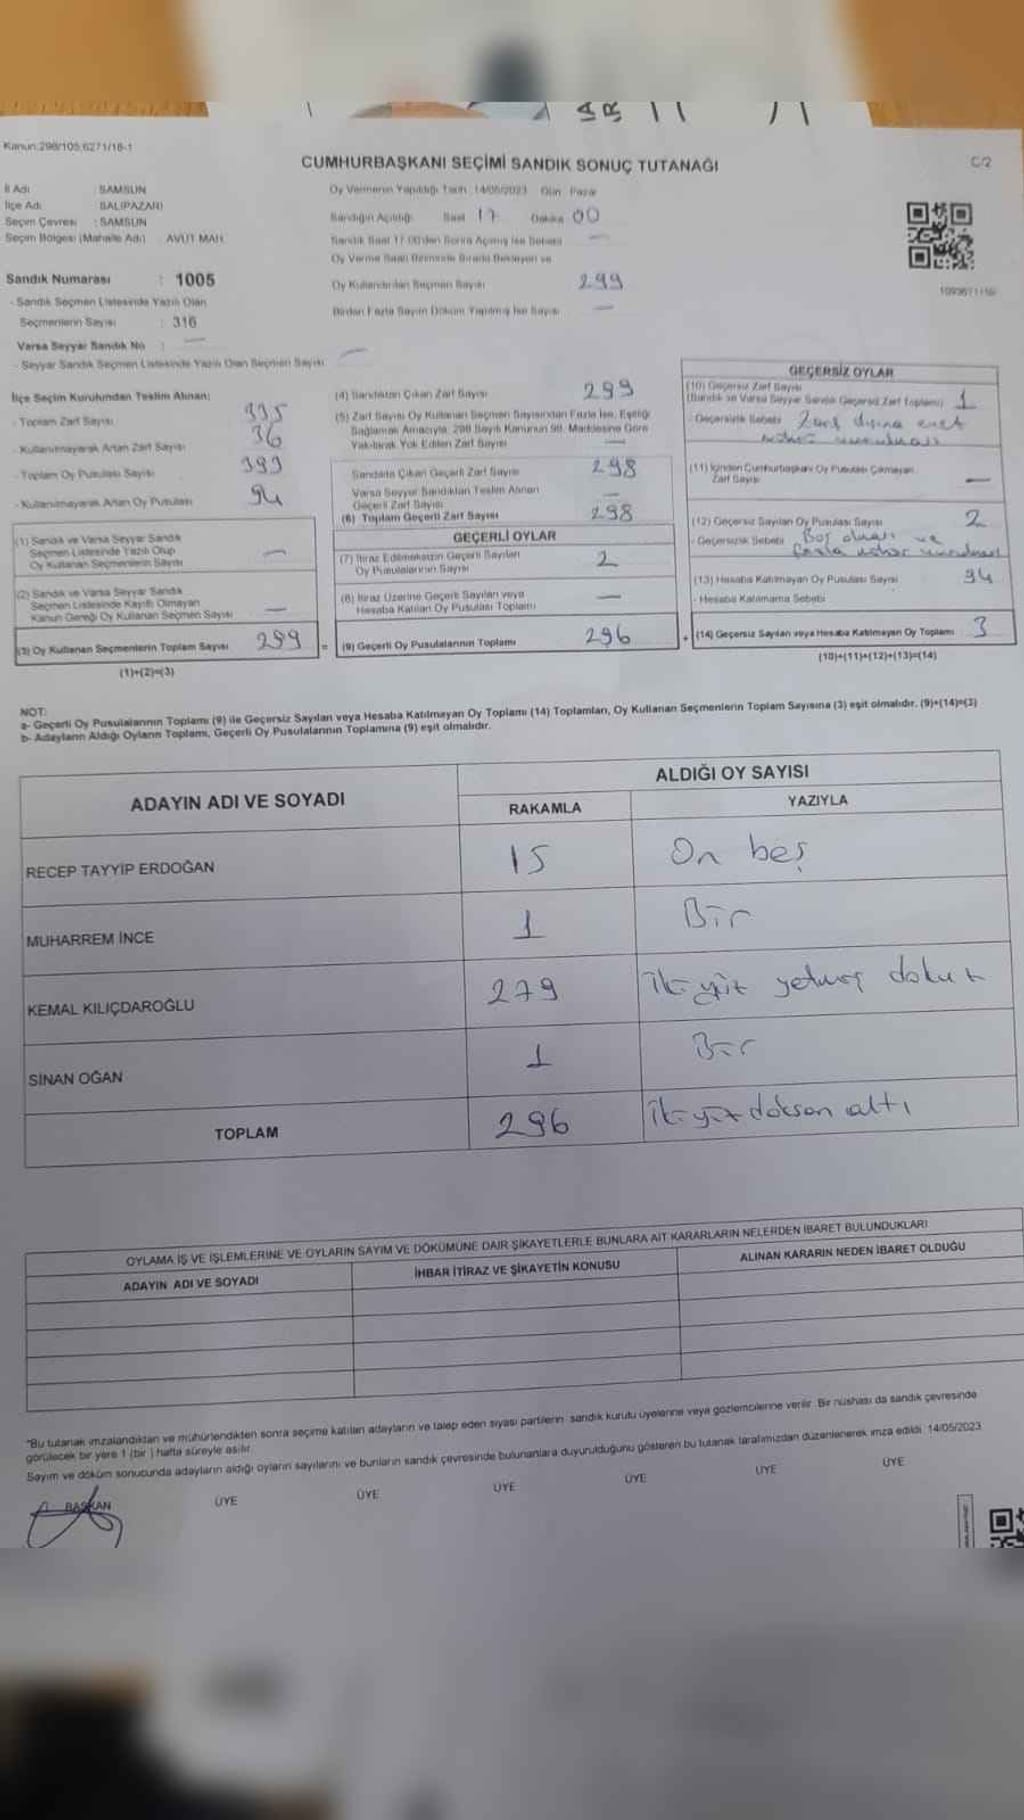 Kanun:298/105;6271/18-1
CUMHURBAŞKANI SEÇİMİ SANDIK SONUÇ TUTANAĞI
C/2
İl Adı : SAMSUN
İlçe Adı : SALIPAZARI
Seçim Çevresi : SAMSUN
Seçim Bölgesi (Mahalle Adı) AVUT MAH.
Oy Vermenin Yapıldığı Tarih :14/05/2023 Gün Pazar
Sandığın Açıldığı Saat 17 Dakika 00
Sandık Saat 17.00'den Sonra Açılmış İse Sebebi —
Oy Verme Saati Bitiminde Sırada Bekleyen ve
Oy Kullandırılan Seçmen Sayısı 299
Birden Fazla Sayım Döküm Yapılmış İse Sayısı —
Sandık Numarası : 1005
- Sandık Seçmen Listesinde Yazılı Olan
Seçmenlerin Sayısı : 316
Varsa Seyyar Sandık No : —
- Seyyar Sandık Seçmen Listesinde Yazılı Olan Seçmen Sayısı —
İlçe Seçim Kurulundan Teslim Alınan:
- Toplam Zarf Sayısı 335
- Kullanılmayarak Artan Zarf Sayısı 36
- Toplam Oy Pusulası Sayısı 393
- Kullanılmayarak Artan Oy Pusulası 94
(1) Sandık ve Varsa Seyyar Sandık
Seçmen Listesinde Yazılı Olup
Oy Kullanan Seçmenlerin Sayısı —
(2) Sandık ve Varsa Seyyar Sandık
Seçmen Listesinde Kayıtlı Olmayan
Kanun Gereği Oy Kullanan Seçmen Sayısı —
(3) Oy Kullanan Seçmenlerin Toplam Sayısı 299 =
(1)+(2)=(3)
(4) Sandıktan Çıkan Zarf Sayısı 299
(5) Zarf Sayısı Oy Kullanan Seçmen Sayısından Fazla İse, Eşitliği
Sağlamak Amacıyla, 298 Sayılı Kanunun 98. Maddesine Göre
Yakılarak Yok Edilen Zarf Sayısı —
Sandıkta Çıkan Geçerli Zarf Sayısı 298
Varsa Seyyar Sandıktan Teslim Alınan
Geçerli Zarf Sayısı —
(6) Toplam Geçerli Zarf Sayısı 298
GEÇERLİ OYLAR
(7) İtiraz Edilmeksizin Geçerli Sayılan
Oy Pusulalarının Sayısı 2
(8) İtiraz Üzerine Geçerli Sayılan veya
Hesaba Katılan Oy Pusulası Toplamı —
(9) Geçerli Oy Pusulalarının Toplamı 296 +
GEÇERSİZ OYLAR
(10) Geçersiz Zarf Sayısı
(Sandık ve Varsa Seyyar Sandık Geçersiz Zarf Toplamı) 1
- Geçersizlik Sebebi Zarf dışına evet
(11) İçinden Cumhurbaşkanı Oy Pusulası Çıkmayan
Zarf Sayısı —
(12) Geçersiz Sayılan Oy Pusulası Sayısı 2
- Geçersizlik Sebebi Boş olması ve
fazla mühür vurulması
(13) Hesaba Katılmayan Oy Pusulası Sayısı 94
- Hesaba Katılmama Sebebi
(14) Geçersiz Sayılan veya Hesaba Katılmayan Oy Toplamı 3
(10)+(11)+(12)+(13)=(14)
NOT:
a- Geçerli Oy Pusulalarının Toplamı (9) ile Geçersiz Sayılan veya Hesaba Katılmayan Oy Toplamı (14) Toplamları, Oy Kullanan Seçmenlerin Toplam Sayısına (3) eşit olmalıdır. (9)+(14)=(3)
b- Adayların Aldığı Oyların Toplamı, Geçerli Oy Pusulalarının Toplamına (9) eşit olmalıdır.
ADAYIN ADI VE SOYADI
ALDIĞI OY SAYISI
RAKAMLA YAZIYLA
RECEP TAYYİP ERDOĞAN 15 On beş
MUHARREM İNCE 1 Bir
KEMAL KILIÇDAROĞLU 279 iki yüz yetmiş dokuz
SİNAN OĞAN 1 Bir
TOPLAM 296 iki yüz doksan altı
OYLAMA İŞ VE İŞLEMLERİNE VE OYLARIN SAYIM VE DÖKÜMÜNE DAİR ŞİKAYETLERLE BUNLARA AİT KARARLARIN NELERDEN İBARET BULUNDUKLARI
ADAYIN ADI VE SOYADI İHBAR İTİRAZ VE ŞİKAYETİN KONUSU ALINAN KARARIN NEDEN İBARET OLDUĞU
"Bu tutanak imzalandıktan ve mühürlendikten sonra seçime katılan adayların ve talep eden siyasi partilerin sandık kurulu üyelerine veya gözlemcilerine verilir. Bir nüshası da sandık çevresinde
görülecek bir yere 1 (bir ) hafta süreyle asılır.
Sayım ve döküm sonucunda adayların aldığı oyların sayılarını ve bunların sandık çevresinde bulunanlara duyurulduğunu gösteren bu tutanak tarafımızdan düzenlenerek imza edildi. 14/05/2023
BAŞKAN ÜYE ÜYE ÜYE ÜYE ÜYE ÜYE